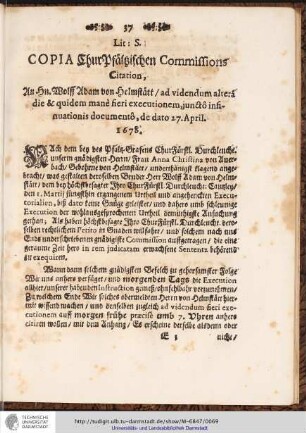 37
Lit: S:
COPIA ChurPfältzischen Commissions
Citation,
An Hn. Wolff Adam von Helmstätt / ad videndum alterâ
die & quidem manè fieri executionem, junctô insi-
nuationis documentô, de dato 17. April.
1678.
NAch dem bey des Pfaltz-Grafens ChurFürstl. Durchleucht.
unserm gnädigsten Herrn / Frau Anna Christina von Auer-
bach / Gebohrne von Helmstätt / unterthänigst klagend ange-
bracht / was gestalten derselben Bruder Herr Wolff Adam von Helm-
stätt / dem höchstbesagter Ihro ChurFürstl: Durchleucht: Cantzley /
den 1. Martij jüngsthin ergangenen Urtheil und angehenckten Execu-
torialien, biß dato keine Gnüge geleistet / und dahero umb schleunige
Execution der wohlausgesprochenen Urtheil demüthigste Ansuchung
gethan / Als haben höchstbesagte Ihr ChurFürstl: Durchleucht: der-
selben rechtlichen Petito in Gnaden willfahret / und solchem nach uns
Ends underschriebenen gnädigste Commission auffgetragen / die eine
geraume Zeit hero in rem judicatam erwachsene Sententz behörend
zu exequiren.
Wann dann solchem gnädigstem Befelch zu gehorsamster Folge
Wir uns anhero verfüget / und morgenden Tags die Execution
allhier / unserer habenden Instruction gemäß / ohnfehlbahr vorzunehmen /
Zu welchem Ende Wir solches obermeldtem Herrn von Helmstätt hier-
mit wissend machen / und denselben zugleich ad videndum fieri exe-
cutionem auff morgen frühe præcise umb 7. Uhren anhero
citiren wollen / mit dem Anhang / Es erscheine derselbe alsdenn oder
E 3
nicht /
TECHNISCHE
UNIVERSITÄT
DARMSTADT
http://tudigit.ulb.tu-darmstadt.de/show/W-6847/0069
Universitäts- und Landesbibliothek Darmstadt